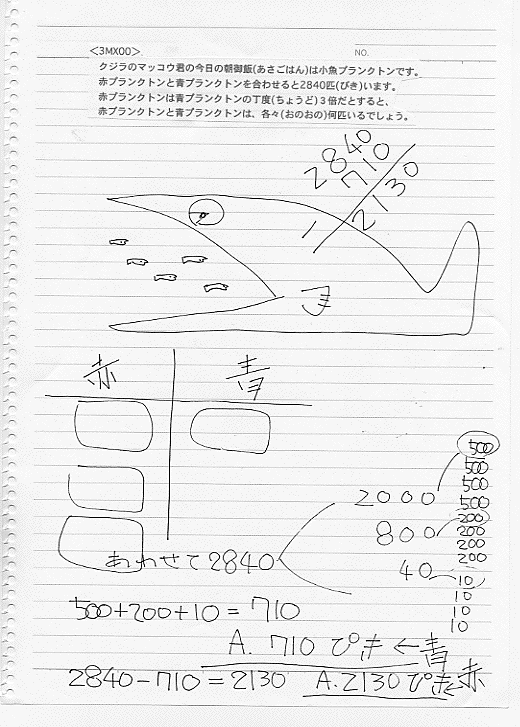 <3MX00>
NO.
クジラのマッコウ君の今日の朝御飯(あさごはん)は小魚プランクトンです。
赤プランクトンと青プランクトンを合わせると2840匹(びき)います。
赤プランクトンは青プランクトンの丁度(ちょうど)3倍だとすると、
赤プランクトンと青プランクトンは、各々(おのおの)何匹いるでしょう。
2840
- 710
2130
赤 青
500
500
500
2000 500
200
800 200
200
200
あわせて2840
40 10
10
10
10
500+200+10=710
A. 710 ぴき ←青
2840-710=2130 A.2130ぴき←赤